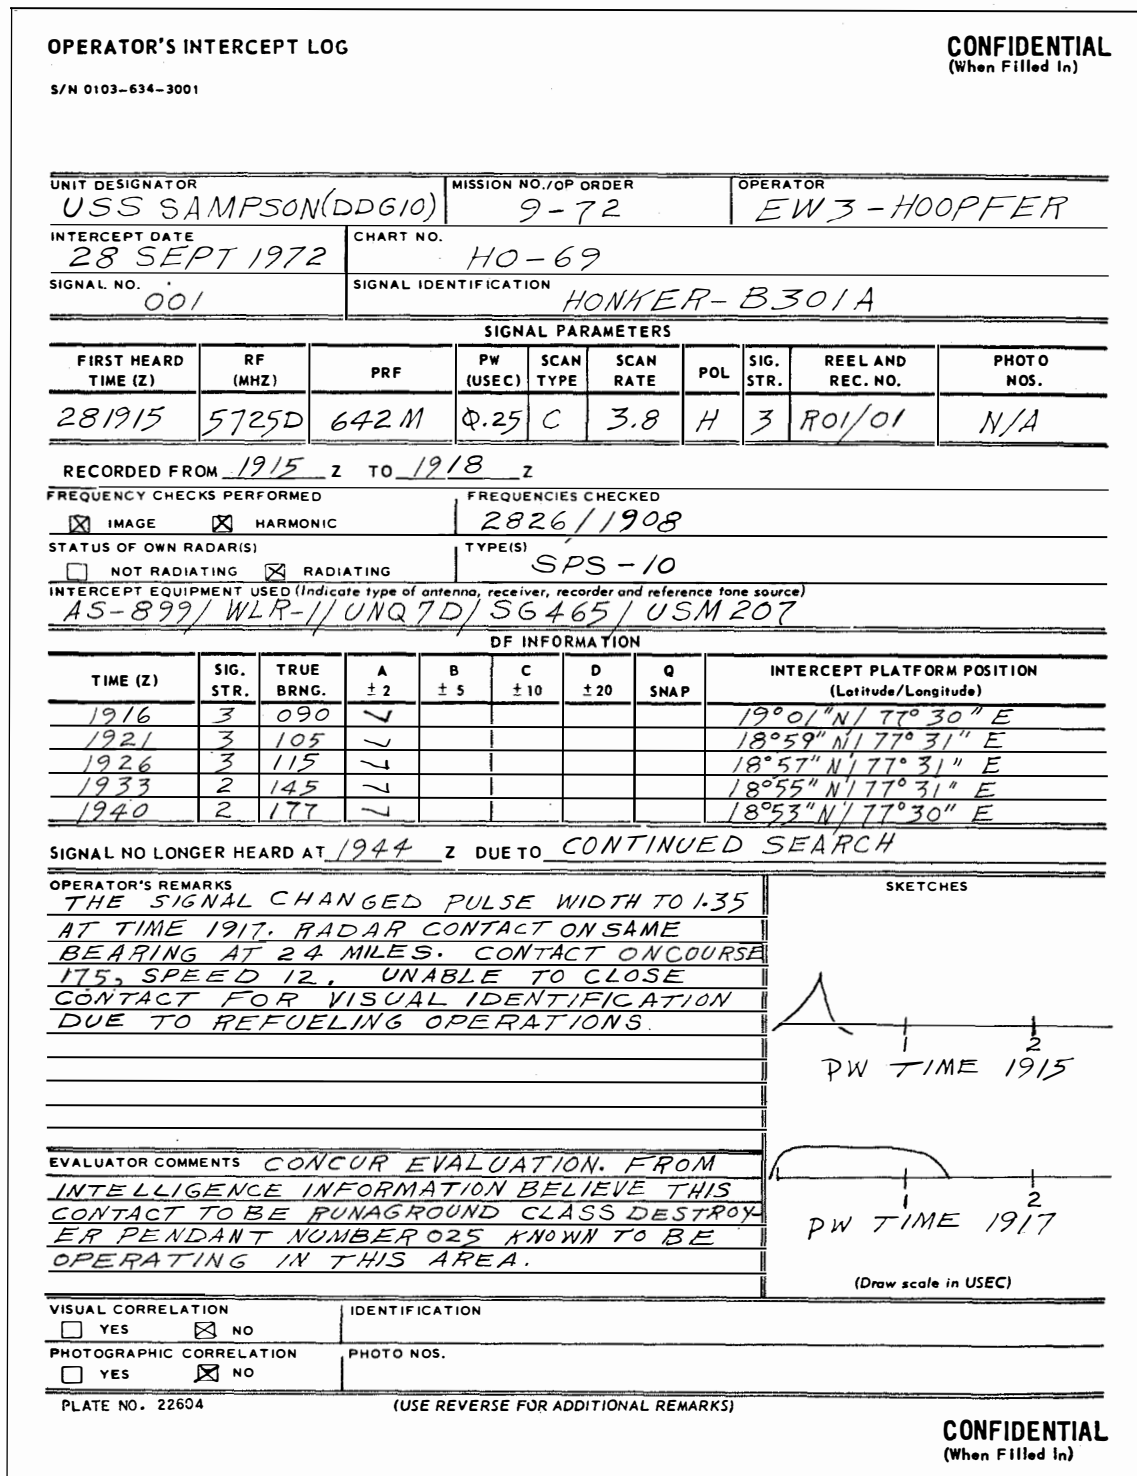 OPERATOR'S INTERCEPT LOG
CONFIDENTIAL
(When Filled In)
S/N 0103-634-3001
UNIT DESIGNATOR MISSION NO./OP ORDER OPERATOR
USS SAMPSON(DDG10) 9-72 EW3-HOOPFER
INTERCEPT DATE CHART NO.
28 SEPT 1972 HO-69
SIGNAL NO. SIGNAL IDENTIFICATION
001 HONKER-B301A
SIGNAL PARAMETERS
FIRST HEARD RF PRF PW SCAN SCAN POL SIG. REEL AND PHOTO
TIME (Z) (MHZ) (USEC) TYPE RATE STR. REC. NO. NOS.
281915 5725D 642M 0.25 C 3.8 H 3 R01/01 N/A
RECORDED FROM 1915 Z TO 1918 Z
FREQUENCY CHECKS PERFORMED FREQUENCIES CHECKED
☒ IMAGE ☒ HARMONIC 2826/1908
STATUS OF OWN RADAR(S) TYPE(S)
☐ NOT RADIATING ☒ RADIATING SPS-10
INTERCEPT EQUIPMENT USED (Indicate type of antenna, receiver, recorder and reference tone source)
AS-899/ WLR-1/ UNQ7D/ SG465/ USM207
DF INFORMATION
TIME (Z) SIG. TRUE A B C D Q INTERCEPT PLATFORM POSITION
STR. BRNG. ± 2 ± 5 ± 10 ± 20 SNAP (Latitude/Longitude)
1916 3 090 ✓ 19°01"N/ 77°30" E
1921 3 105 ✓ 18°59"N/ 77°31" E
1926 3 115 ✓ 18°57"N/ 77°31" E
1933 2 145 ✓ 18°55"N/ 77°31" E
1940 2 177 ✓ 18°53"N/ 77°30" E
SIGNAL NO LONGER HEARD AT 1944 Z DUE TO CONTINUED SEARCH
OPERATOR'S REMARKS
THE SIGNAL CHANGED PULSE WIDTH TO 1.35
AT TIME 1917. RADAR CONTACT ON SAME
BEARING AT 24 MILES. CONTACT ON COURSE
175, SPEED 12. UNABLE TO CLOSE
CONTACT FOR VISUAL IDENTIFICATION
DUE TO REFUELING OPERATIONS.
SKETCHES
1 2
PW TIME 1915
1 2
PW TIME 1917
(Draw scale in USEC)
EVALUATOR COMMENTS CONCUR EVALUATION. FROM
INTELLIGENCE INFORMATION BELIEVE THIS
CONTACT TO BE RUNAGROUND CLASS DESTROY-
ER PENDANT NUMBER 025 KNOWN TO BE
OPERATING IN THIS AREA.
VISUAL CORRELATION IDENTIFICATION
☐ YES ☒ NO
PHOTOGRAPHIC CORRELATION PHOTO NOS.
☐ YES ☒ NO
PLATE NO. 22604 (USE REVERSE FOR ADDITIONAL REMARKS)
CONFIDENTIAL
(When Filled In)